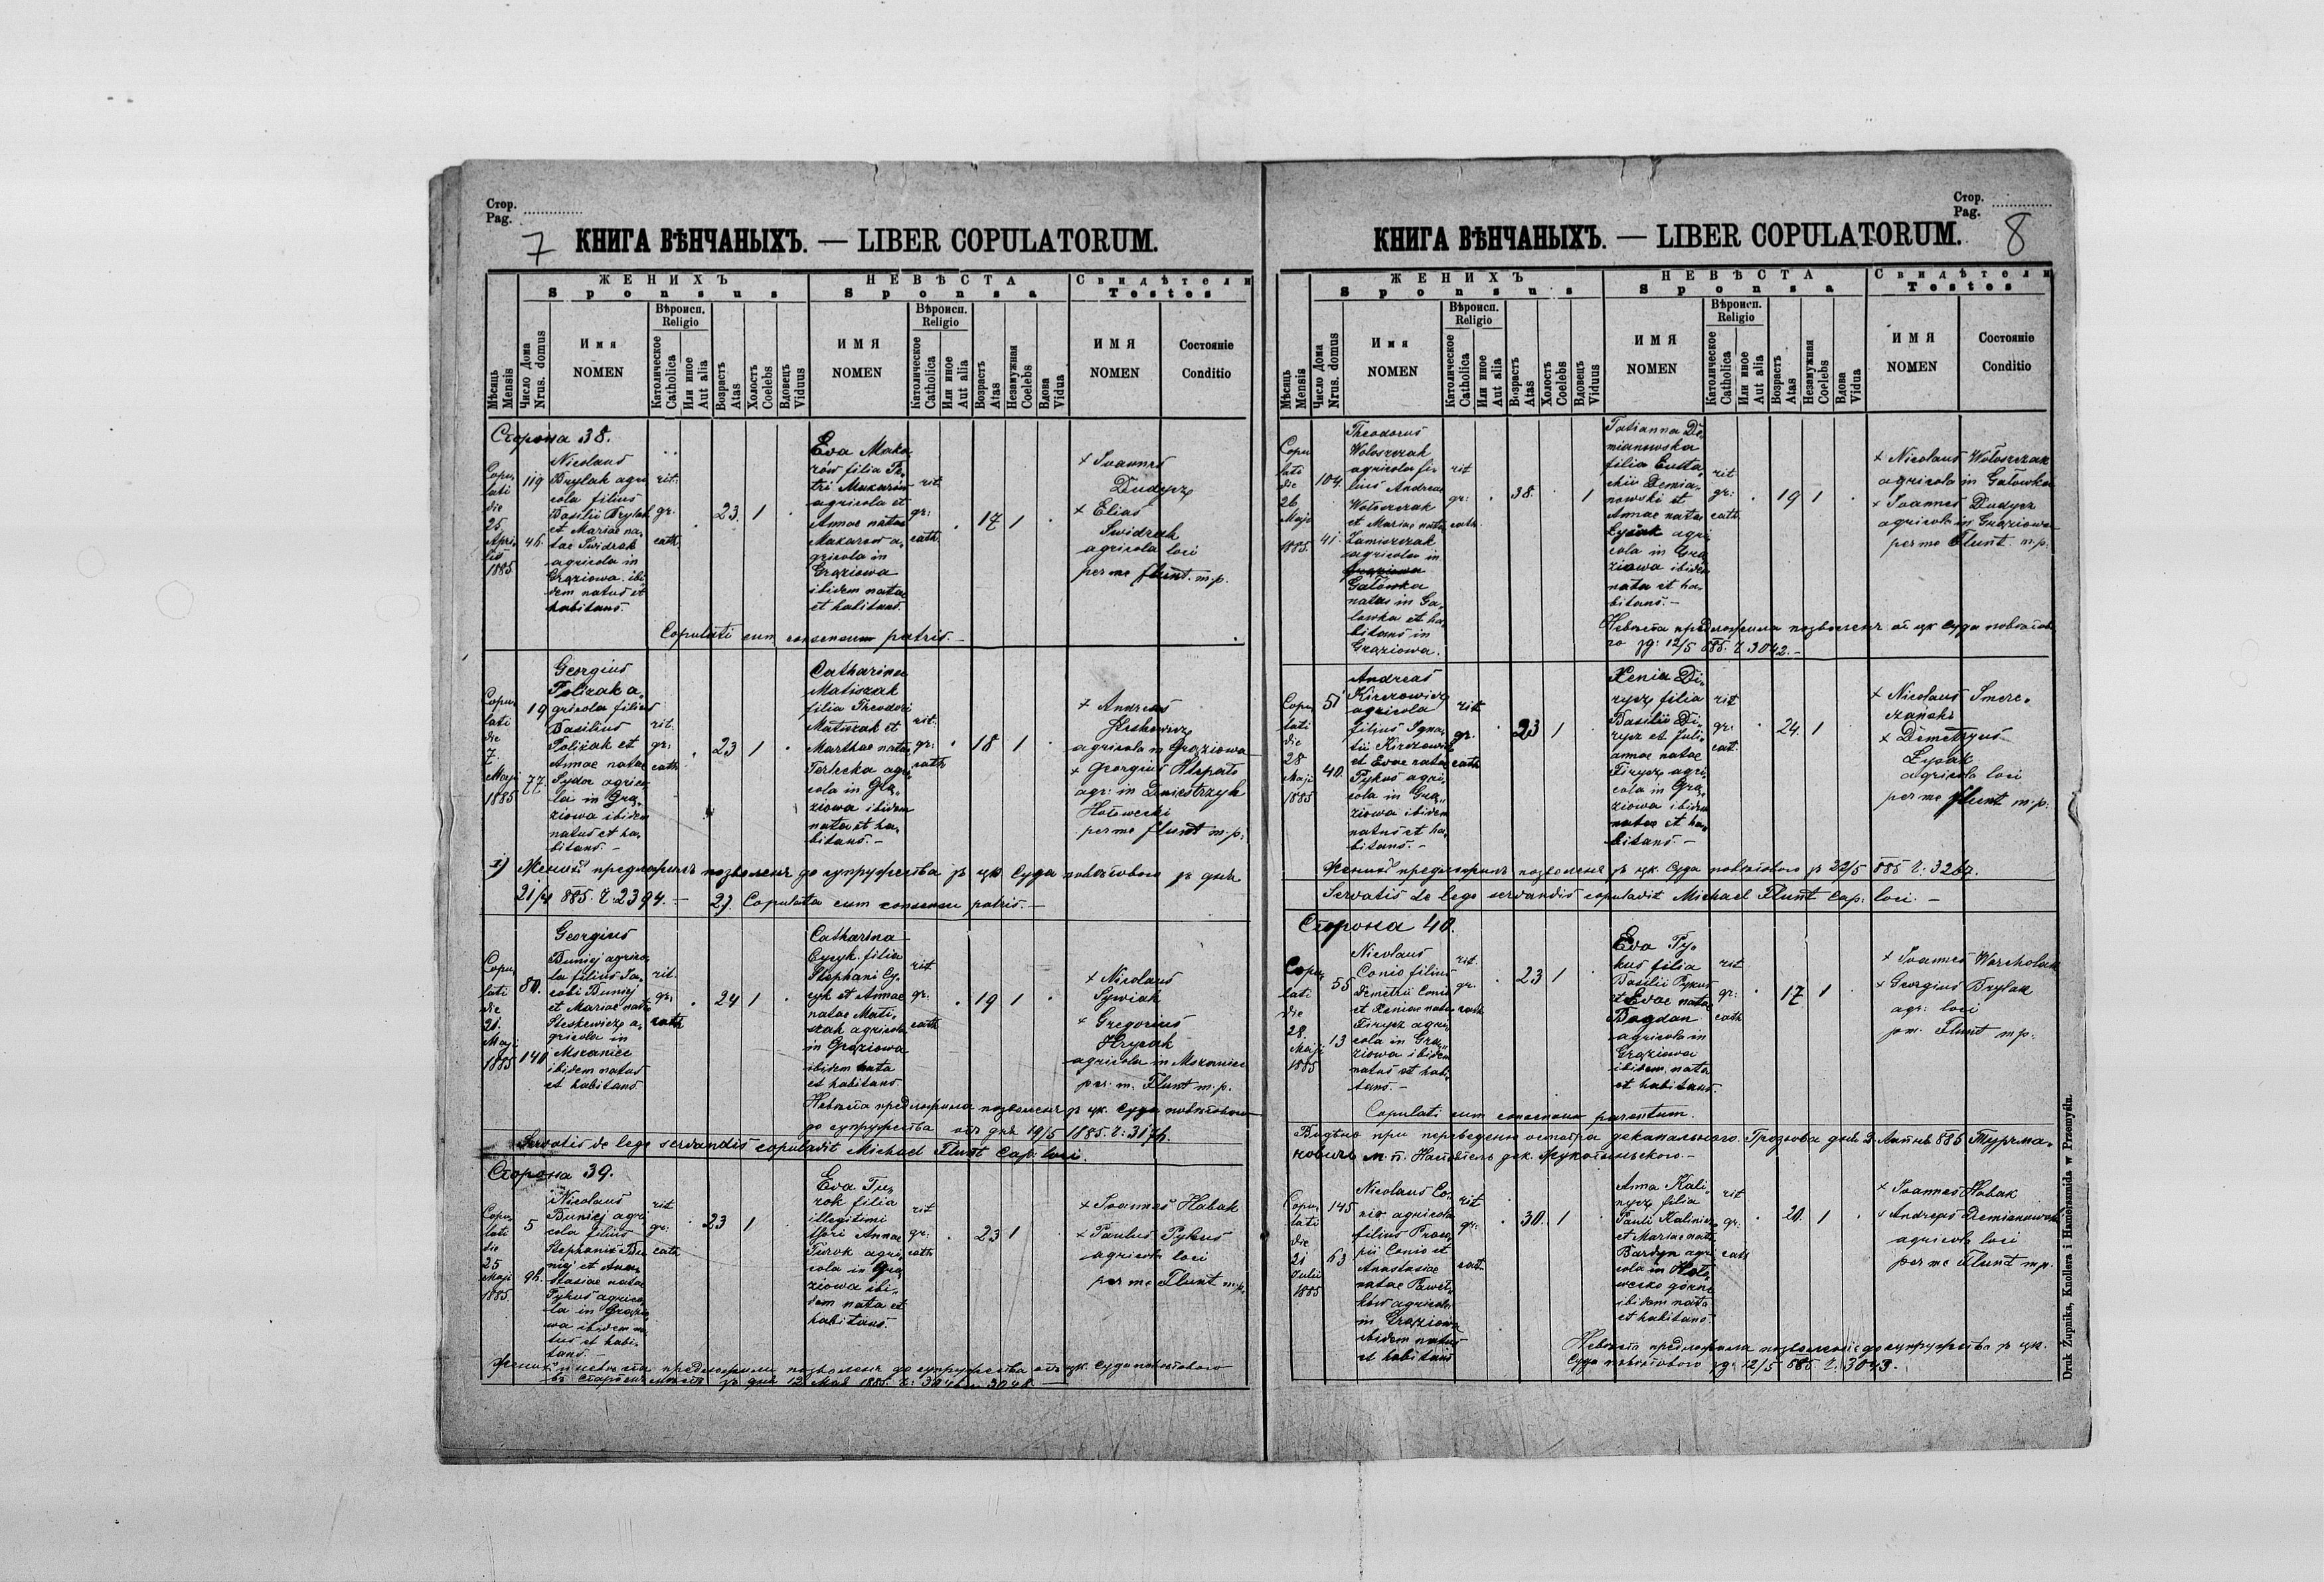 Стор.
Pag.
7
КНИГА ВѢНЧАНЫХЪ. — LIBER COPULATORUM.
Мѣсяць
Mensis
Число Дома
Nrus. domus
ЖЕНИХЪ
Sponsus
Имя
NOMEN
Вѣроисп.
Religio
Католическое
Catholica
Или иное
Aut alia
Возрастъ
Atas
Холостъ
Coelebs
Вдовецъ
Viduus
НЕВѢСТА
Sponsa
ИМЯ
NOMEN
Вѣроисп.
Religio
Католическое
Catholica
Или иное
Aut alia
Возрастъ
Atas
Незамужная
Coelebs
Вдова
Vidua
Свидѣтели
Testes
ИМЯ
NOMEN
Состояніе
Conditio
Сторона 38.
Copu-
lati
die
25
Apri-
lis
1885
119
46.
Nicolaus
Brylak agri
cola filius
Basilii Brylak
et Mariae na-
tae Swidrak
agricola in
Graziowa ibi
dem natus et
habitans.
rit.
gr.
cath.
23.
1
Eva Maka
rów filia Pe-
tri Makarów
agricola et
Annae natae
Makarów a-
gricola in
Graziowa
ibidem natae
et habitans.
rit.
gr:
cath.
17
1
+ Ioannes
Dudycz
+ Elias
Swidrak
agricola loci
per me Flunt. m.p.
Copulati cum consensu patris.-
Copu-
lati
die
7
Maji
1885
19
77.
Georgius
Poliżak a-
gricola filius
Basilius
Poliżak et
Annae natae
Sydor agrico
la in Gra-
ziowa ibidem
natus et ha-
bitans.-
rit.
gr:
cath
23
1
Catharina
Matiszak
filia Theodori
Matiszak et
Marthae natae
Terlecka agri-
cola in Gra-
ziowa ibidem
nata et ha-
bitans.-
rit.
gr:
cath
18
1
+ Andreas
Steskewicz
agricola in Graziowa
+ Georgius
agr: in Dniestrzyk
Hołowecki
per me Flunt m.p.
21/4 885. Ч. 2394.- 2). Copulata cum consensu patris.-
Copu-
lati
die
21.
Maji
1885
80.
140
Georgius
Buniej agrico-
la filius Ja-
cobi Buniej
et Mariae natae
Steskewicz a-
gricola in
Mszaniec
ibidem natus
et habitans
rit.
gr.
cath
24
1
Catharina
Cycyk filia
Stephani Cy-
cyk et Annae
natae Mati-
szak agricola
in Graziowa
ibidem nata
et habitans
rit.
gr:
cath
19
1
+ Nicolaus
Sywiak
+ Gregorius
Hrycak
agricola in Mszaniec
per. m. Flunt m.p.
Servatis de lege servandis copulavit Michael Flunt Cap: loci.
Сторона 39.
Copu-
lati
die
25
Maji
1885.
5
96.
Nicolaus
Buniej agri
cola filius
Stephanis Bu
niej et Ana-
stasiae natae
Pykus agrico-
la in Grazio-
wa ibidem na
tus et habi-
tans.-
rit
gr:
cath
23
1
Eva Tu-
rok filia
illegitimi
thori Annae
Turok agri-
cola in Gra
ziowa ibi-
dem nata et
habitans.
rit
gr:
cath
23
1
+ Ioannes Habak
+ Paulus Pykus
agricola loci
per me Flunt m.p.
Стор.
Pag.
8
КНИГА ВѢНЧАНЫХЪ. — LIBER COPULATORUM.
Мѣсяць
Mensis
Число Дома
Nrus. domus
ЖЕНИХЪ
Sponsus
Имя
NOMEN
Вѣроисп.
Religio
Католическое
Catholica
Или иное
Aut alia
Возрастъ
Atas
Холостъ
Coelebs
Вдовецъ
Viduus
НЕВѢСТА
Sponsa
ИМЯ
NOMEN
Вѣроисп.
Religio
Католическое
Catholica
Или иное
Aut alia
Возрастъ
Atas
Незамужная
Coelebs
Вдова
Vidua
Свидѣтели
Testes
ИМЯ
NOMEN
Состояніе
Conditio
Copu
lati
die
26
Maji
1885.
104.
41.
Theodorus
Wołoszczak
agricola fi-
lius Andreae
Wołoszczak
et Mariae natae
agricola in
Graziowa
Gałówka
natus in Ga-
łowka et ha-
bitans in
Graziowa.
rit
gr:
cath.
38.
1
Tatianna De-
mianowska
filia Eusta-
chii Demia-
nowski et
Annae natae
Łysak agri
cola in Gra
ziowa ibidem
nata et ha-
bitans.-
rit
gr:
cath.
19
1
+ Nicolaus Wołoszczak
agricola in Gałowka
+ Ioannes Dudycz
agricola in Graziowa
per me Flunt. m.p.
12/5 885. Ч. 3042.-
Copu-
lati
die
28
Maji
1885
51
40.
Andreas
Kirczowicz
agricola
filius Igna-
tii Kirczowicz
et Evae natae
Pykus agri-
cola in Gra-
ziowa ibidem
natus et ha-
bitans.-
rit
gr.
cath
23
1
Xenia Di-
rycz filia
Basilii Di-
rycz et Juli-
annae natae
Firycz agri-
cola in Gra-
ziowa ibidem
natae et ha-
bitans.-
rit
gr:
cat.
24.
1
+ Nicolaus Smere-
czański
+ Demetrius
Łysak
agricola loci
per me Flunt m.p.
Servatis de lege servandis copulavit Michael Flunt Cap: loci.-
Сторона 40.
Copu-
lati
die
28.
Maji
1885
55
13
Nicolaus
Conio filius
Demetrii Conio
et Xeniae natae
Firycz agri-
cola in Gra-
ziowa ibidem
natus et habi-
tans.-
rit.
gr.
cath
23
1
Eva Py-
kus filia
Basilii Pykus
et Evae natae
Bogdan
agricola in
Graziowa
ibidem nata
et habitans.
rit
gr:
cath
17
1
+ Ioannes Warcholak
+ Georgius Brylak
agr: loci
pm. Flunt m.p.
Copulati cum consensu parentum.
Copu-
lati
die
21
Julii
1885
145
63
Nicolaus Co-
nio agricola
filius Proco-
pii Conio et
Anastasiae
natae Pawel-
ków agricola
in Graziowa
ibidem natus
et habitans
rit
gr.
cat.
30.
1
Anna Kali-
nycz filia
Pauli Kalinicz
et Mariae natae
Bardyn agri
cola in Hoło-
wecko górne
ibidem nata
et habitans.
rit
gr:
cath
20.
1
+ Ioannes Habak
+ Andreas Demianowski
agricola loci
per me Flunt m.p.
12/5 885 Ч. 3043.
Druk Żupnika, Knollera i Hamerszmida w Przemyślu.